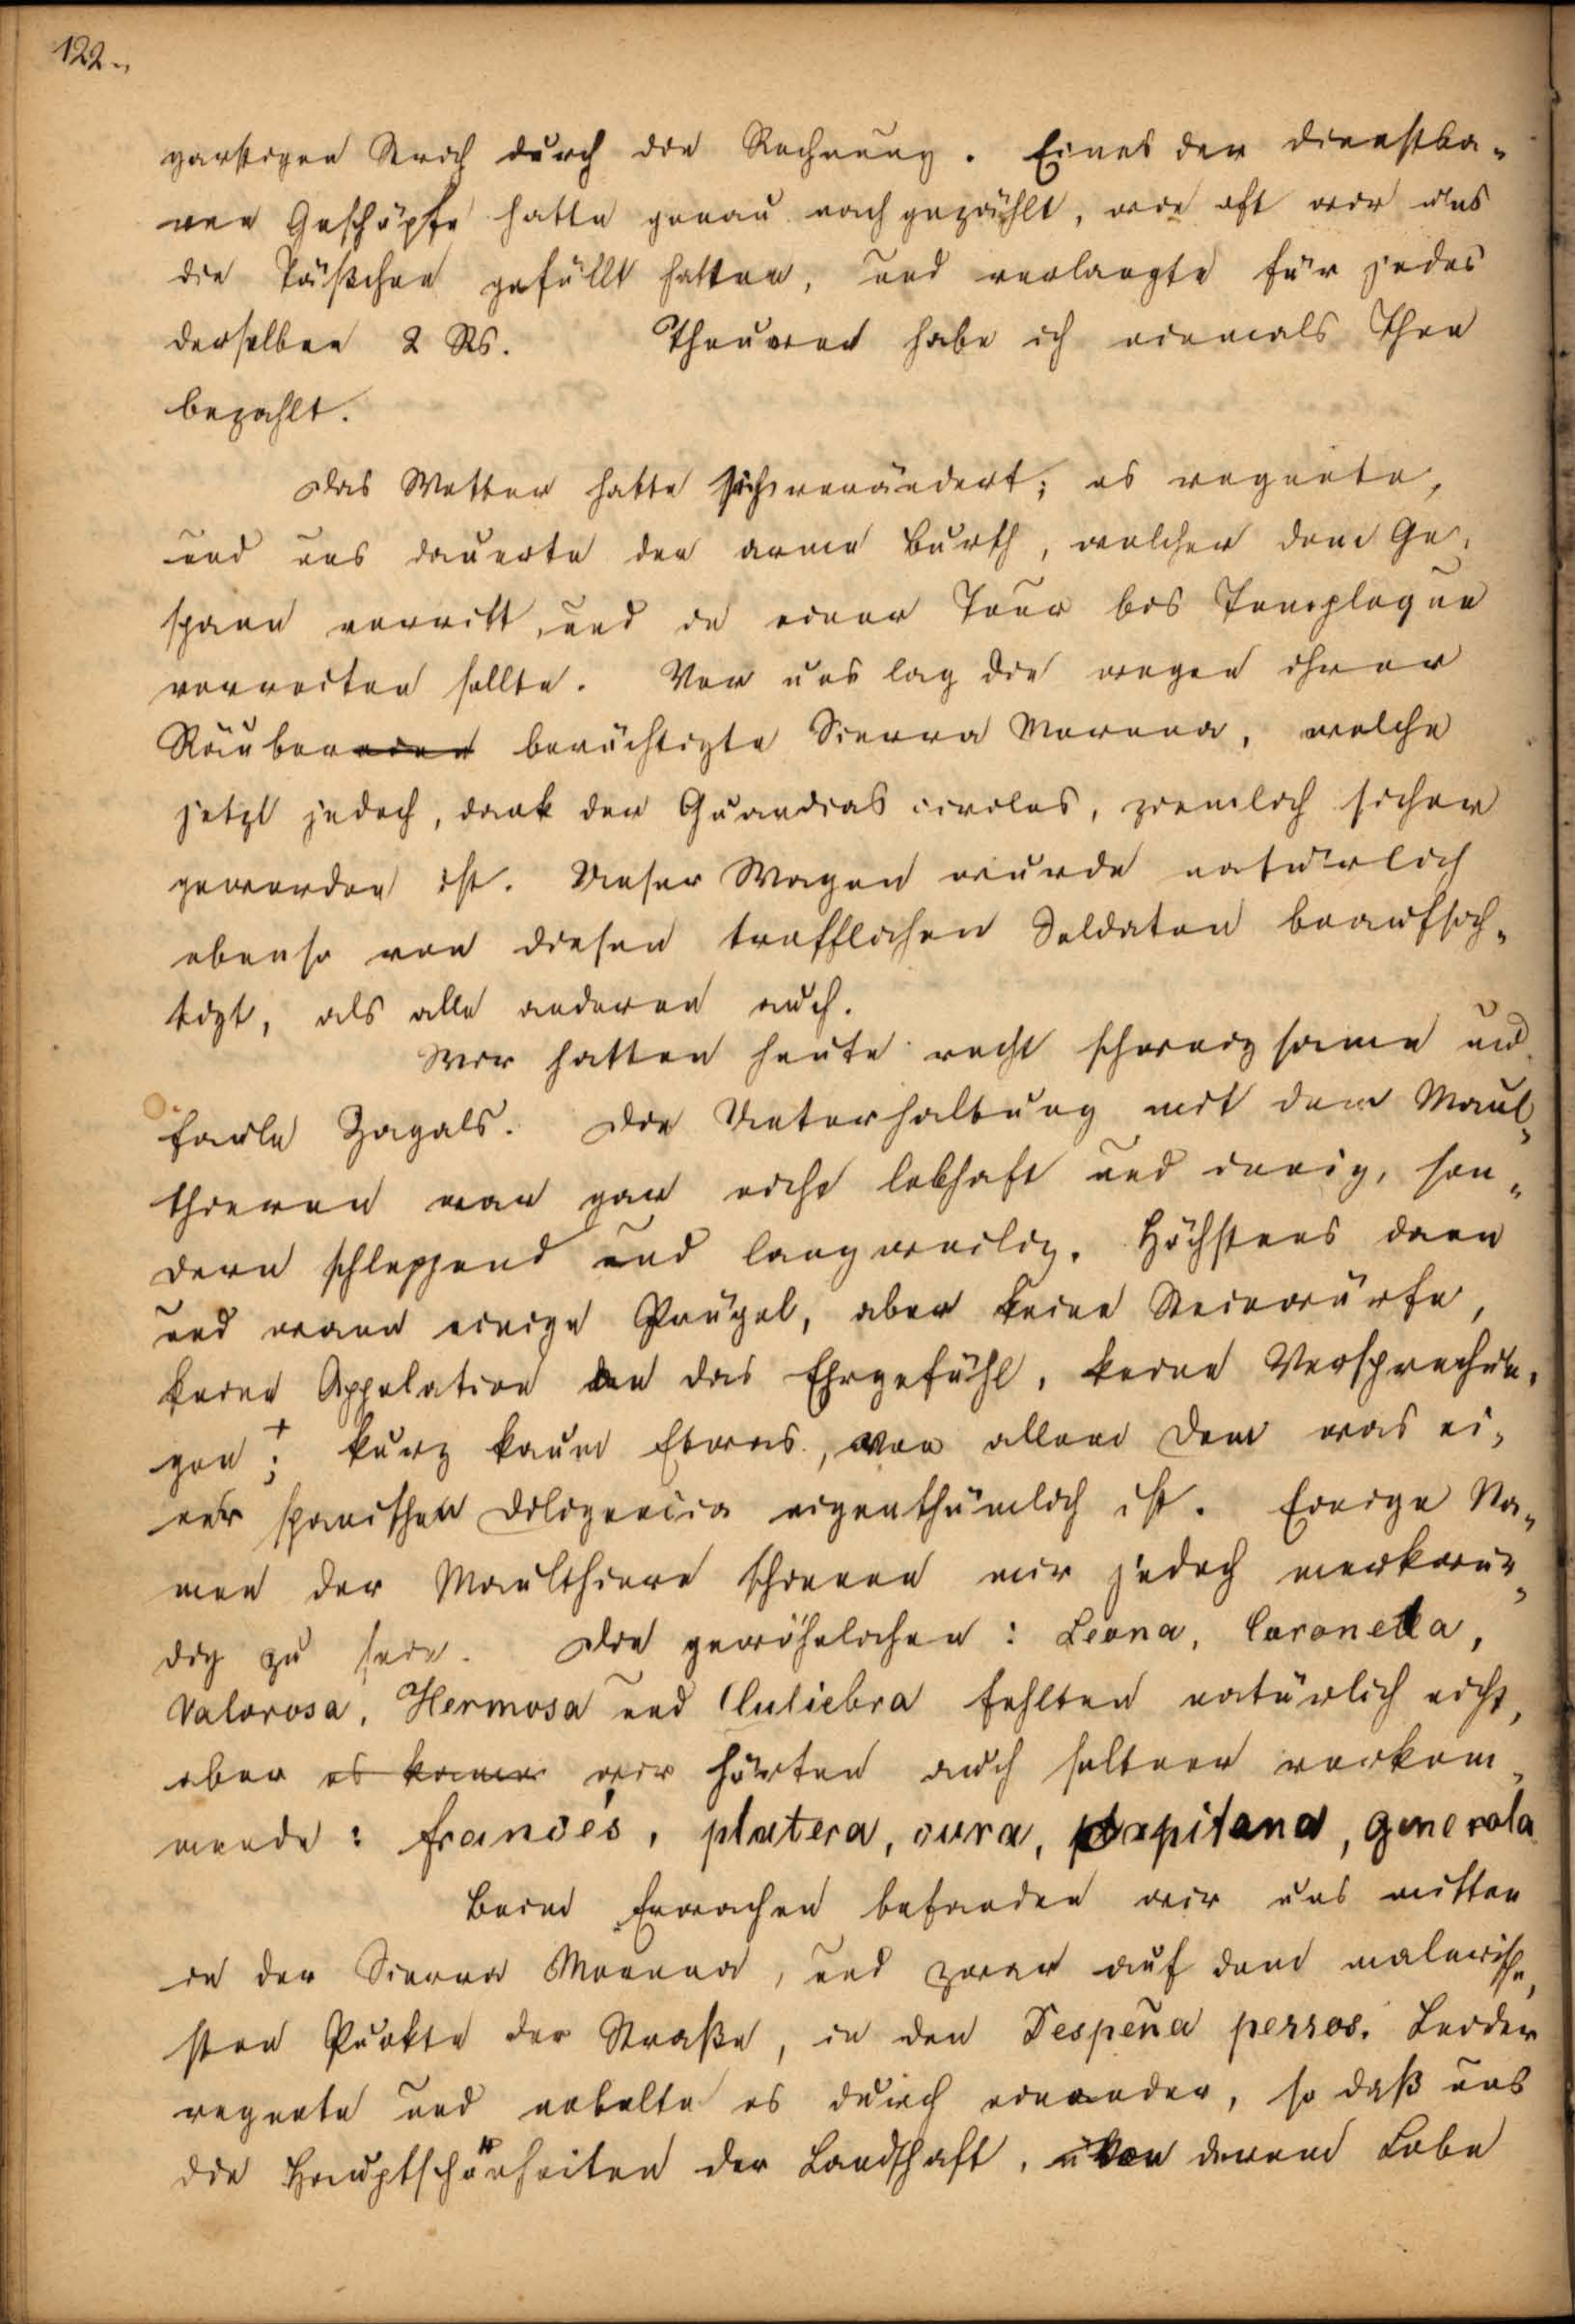 122.
garstigen Strich durch die Rechnung. Eines der dienstba-
ren Geschöpfe hatte genau nachgezählt, wie oft wir uns
die Täßchen gefüllt hatten, und verlangte für jedes
derselben 2 Rs. Theureren habe ich niemals Thee
bezahlt.
Das Wetter hatte sich verändert; es regnete,
und uns dauerte der arme Bursch, welcher dem Ge-
spann vorritt, und in einer Tour bis
vorreiten sollte. Vor uns lag die wegen ihrer
Räubereien berüchtigte Sierra Morena, welche
jetzt jedoch, dank der Guardias civiles, ziemlich sicher
geworden ist. Unser Wagen wurde natürlich
ebenso von diesen trefflichen Soldaten beaufsich-
tigt, als alle anderen auch.
Wir hatten heute recht schweigsame und
faule Zagals. Die Unterhaltung mit den Maul-
thieren war gar nicht lebhaft und innig, son-
dern schleppend und langweilig. Höchstens dann
und wann einige Prügel, aber keine Steinwürfe,
keine Appelation an das Ehrgefühl, keine Versprechun-
gen; + kurz kaum Etwas, von allem dem was ei-
ner spanischen Diligencia eigenthümlich ist. Einige Na-
men der Maulthiere schienen mir jedoch merkwür-
dig zu sein. Die gewöhnlichen: Leona, Coronela,
Valorosa, Hermosa und Culiebra fehlten natürlich nicht,
aber es kamen wir hörten auch seltner vorkom-
mende: francés, platera, cura, capitana, generala
Beim Erwachen befanden wir uns mitten
in der Sierra Morena, und zwar auf dem malerische-
sten Punkte der Straße, in den Despeña perros. Leider
regnete und nebelte es durch einander, so daß uns
die Hauptschönheiten der Landschaft, von deren Lobe